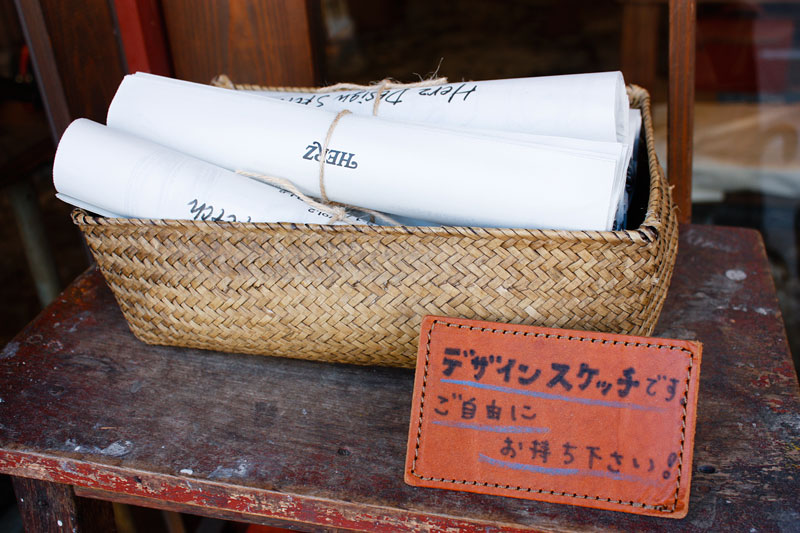 Herz Design
HERZ
デザインスケッチです。
ご自由に
お持ち下さい!